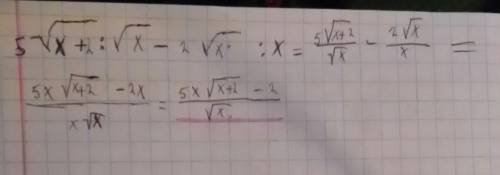 5√(x+2) : √x − 2√x : x = (5√(x+2))/√x − (2√x)/x =
(5x√(x+2) − 2x)/(x√x) = (5x√(x+2) − 2)/√x